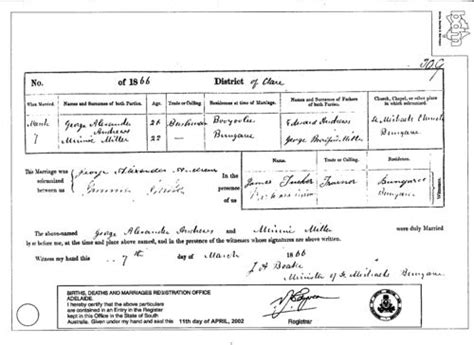 No. of 1866 District of Clare
When Married. Names and Surnames of both Parties. Age. Trade or Calling. Residences at time of Marriage. Names and Surnames of Fathers of both Parties. Church, Chapel, or other place in which solemnized.
March George Alexander Andrews 28 Bushman Booyoolie Edward Andrews St Michaels Church
7 Minnie Miller 22 Bungaree George Miller Bungaree
Name. Trade or Calling. Residence.
This Marriage was solemnized between us George Alexander Andrews Minnie Miller In the presence of us James Bungaree Witnesses.
The above-named George Alexander Andrews and Minnie Miller were duly Married
by before me, at the time and place above named, and in the presence of the witnesses whose signatures are above written.
Witness my hand this 7th day of March 1866
J H
Minister of St Michaels Bungaree
BIRTHS, DEATHS AND MARRIAGES REGISTRATION OFFICE
ADELAIDE.
I hereby certify that the above particulars
are contained in an Entry in the Register
kept in this Office in the State of South
Australia. Given under my hand and seal this 11th day of APRIL, 2002
Registrar